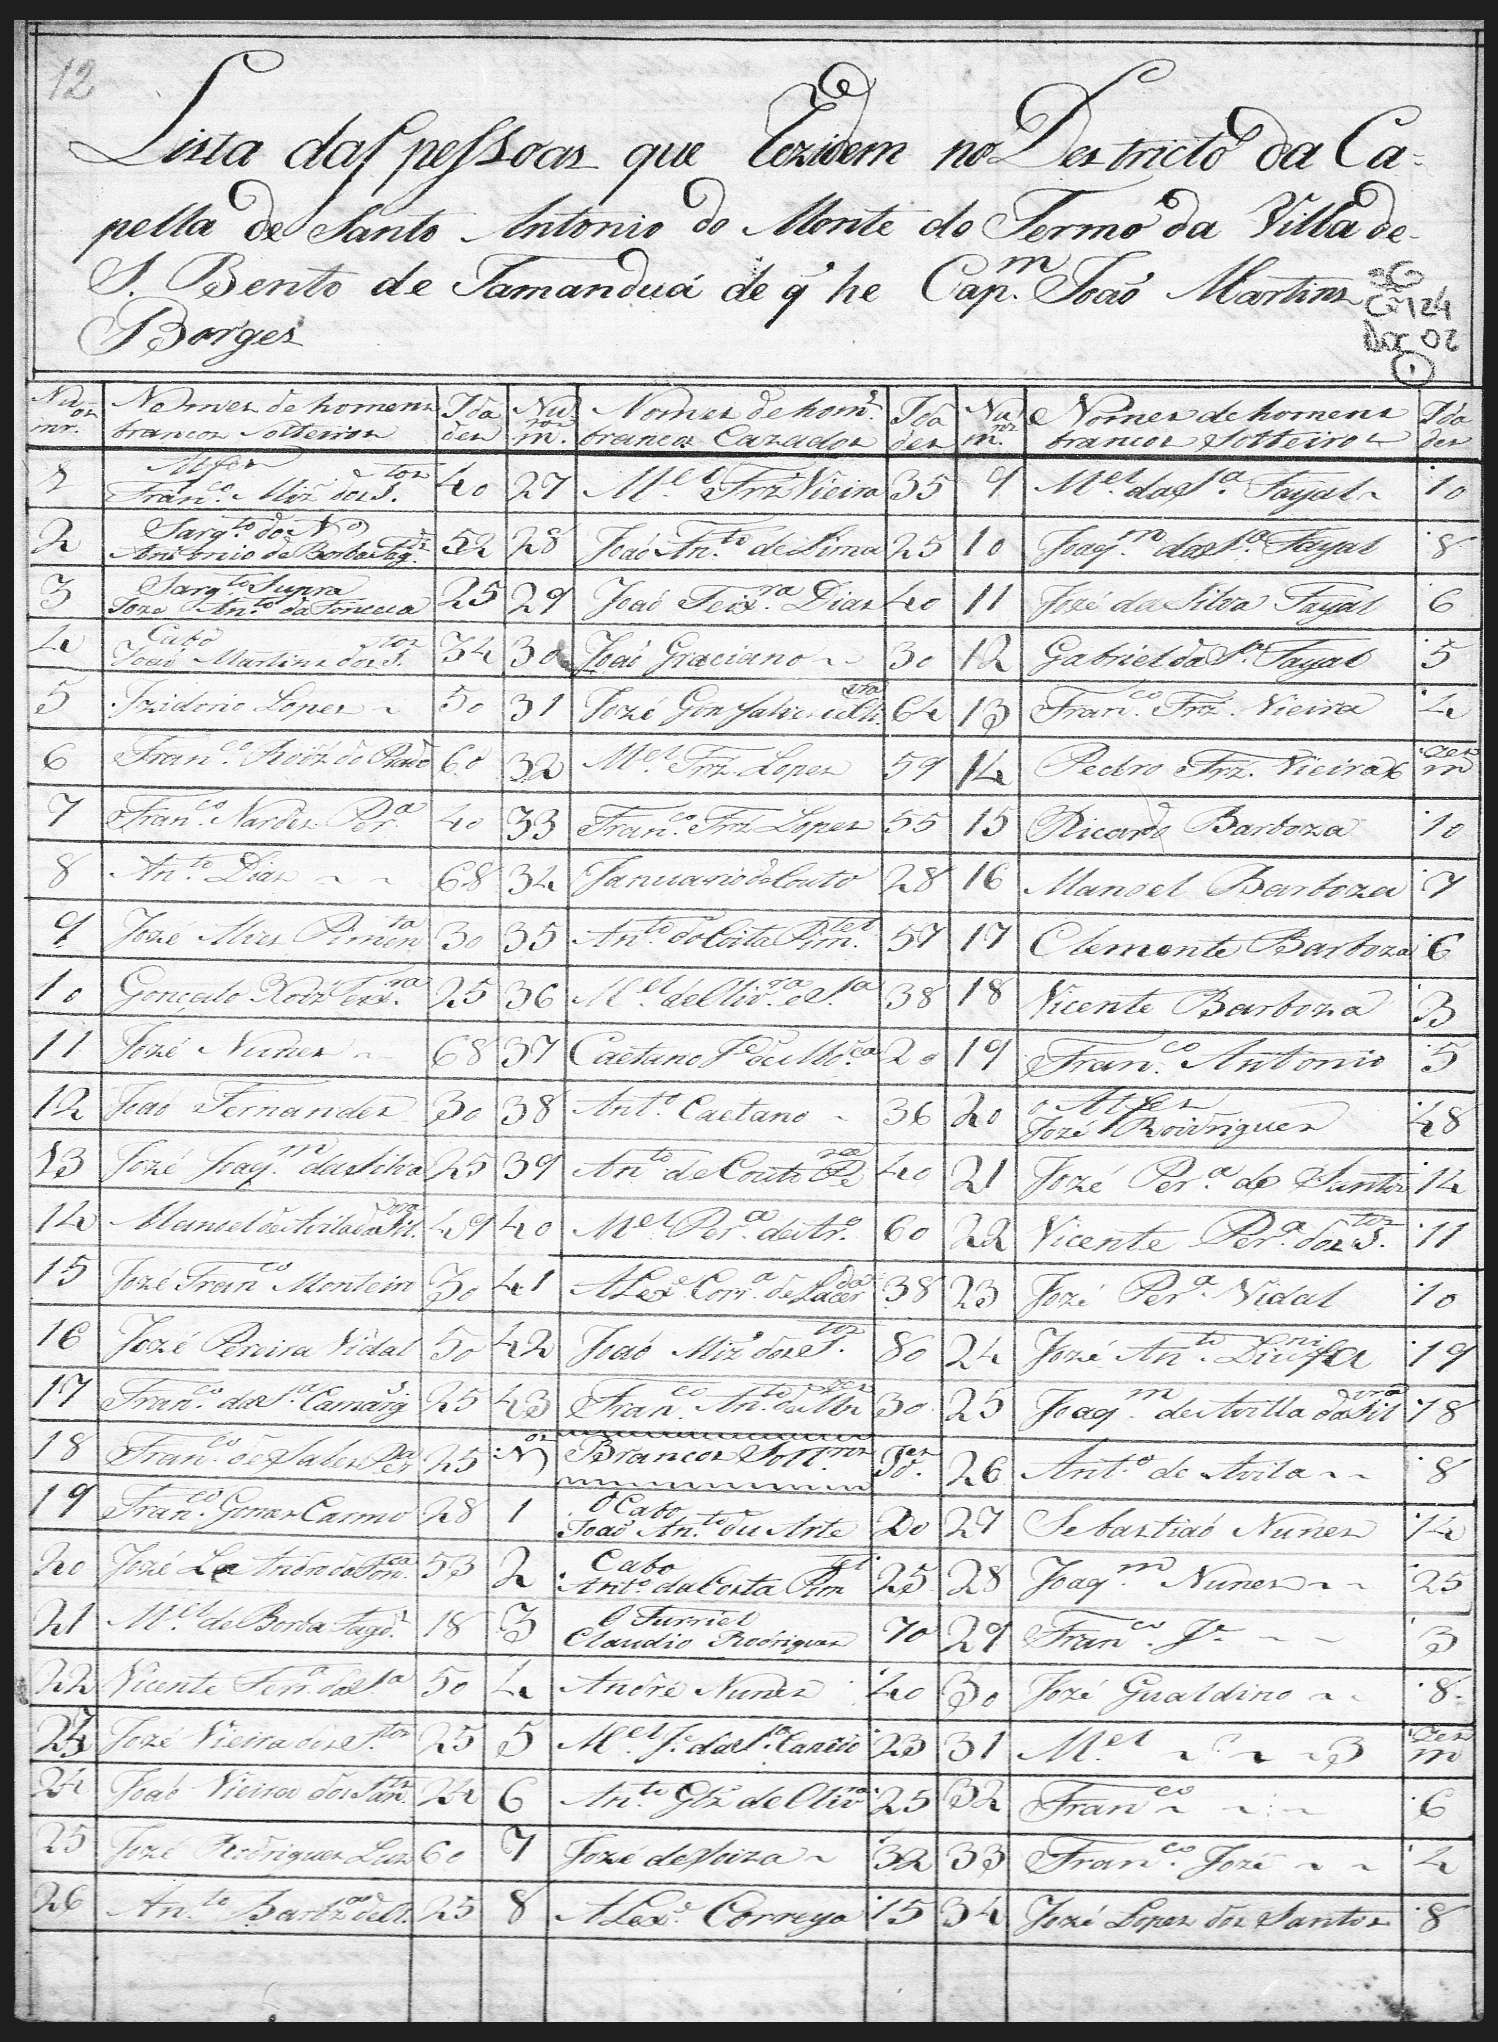 12
Lista das pessoas que Rezidem no Destricto da Ca-
pella de Santo Antonio do Monte do Termo da Villa de
S. Bento de Tamanduá de q' he Cap.m João Martins
Borges
Cx 124
Dox 02
1
Nu mr.os Nomes de homens brancos Solteiros Ida des Nu m.ros Nomes de hom.s brancos Cazados Ida des Nu m.ros Nomes de homens brancos Solteiros Ida des
1 Alferes Fran.co Miz dos S.tos 40 27 M.el Frz Vieira 35 9 M.el da S.a Fayal 10
2 Sarg.to do N.o Antonio de Borba Fag.dz 52 28 João An.to de Lima 25 10 Joaq.m da S.a Fayal 8
3 Sarg.to Supra Joze An.to da Fonceca 25 29 João Teix.ra Dias 40 11 José da Silva Fayal 6
4 Cabo João Martins dos S.tos 34 30 João Graciano 30 12 Gabriel da S.a Fayal 5
5 Izidorio Lopes 50 31 Jozé Gonsalves 64 13 Fran.co Frz. Vieira 4
6 Fran.co Roiz do Prado 60 32 M.el Frz Lopes 59 14 Pedro Frz. Vieira 6 mezes
7 Fran.co Nardes Per.a 40 33 Fran.co Frz Lopes 55 15 Ricardo Barboza 10
8 An.to Dias 68 34 Januario do Couto 28 16 Manoel Barboza 7
9 Jozé Pimen.ta 30 35 An.to da Costa Pim.tel 57 17 Clemente Barboza 6
10 Gonçalo Roiz Teix.ra 25 36 M.el de Oliv.ra e S.a 38 18 Vicente Barboza 3
11 Jozé Nunes 68 37 Caetano J.e 20 19 Fran.co Antonio 5
12 João Fernandes 30 38 Ant.o Caetano 36 20 o Alferes Jozé Roidrigues 48
13 Jozé Joaq.m da Silva 25 39 An.to de Couto 40 21 Jozé Per.a de Santos 14
14 Manoel de Avila da Silv.ra 49 40 M.el Per.a de Ar.o 60 22 Vicente Per.a dos S.tos 11
15 Jozé Fran.co Monteiro 30 41 Alex.e Corr.a de Lacer.da 38 23 Jozé Per.a Vidal 10
16 Jozé Pereira Vidal 50 42 João Miz dos S.tos 80 24 Jozé An.to 19
17 Fran.co da S.a Camarg.s 25 43 Fran.co An.to 30 25 Joaq.m de Avilla da Silv.ra 18
18 Fran.co de Sales Per.a 25 N.os Brancos Solt.ros Id.es 26 Ant.o de Avila 8
19 Fran.co Gomes Carmo 28 1 O Cabo João An.to Du Arte 20 27 Sebastião Nunes 14
20 Jozé Leandro da Fon.ca 53 2 Cabo Ant.o da Costa Pim.tel 25 28 Joaq.m Nunes 25
21 M.el de Borba Fagd.z 18 3 O Furriel Claudio Rodrigues 70 29 Fran.co J.e 3
22 Vicente Ferr.a da S.a 50 4 André Nunes 40 30 Jozé Gualdino 8
23 Jozé Vieira dos S.tos 25 5 M.el J.e da S.a 23 31 M.el 3 mezes
24 João Vieira dos San.tos 24 6 An.to Glz de Oliv.ra 25 32 Fran.co 6
25 Jozé Rodrigues Luz 60 7 Jozé de Soiza 32 33 Fran.co Jozé 4
26 An.to Barb.za 25 8 Alex.e Correya 15 34 Jozé Lopes dos Santos 8